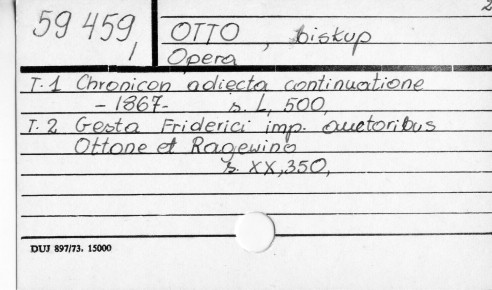 2
59 459
I
OTTO, biskup
Opera
T. 1 Chronicon adiecta continuatione
- 1867- s. L, 500,
T. 2 Gesta Friderici imp. auctoribus
Ottone et Ragewino
s. XX,350,
DUJ 897/73. 15000